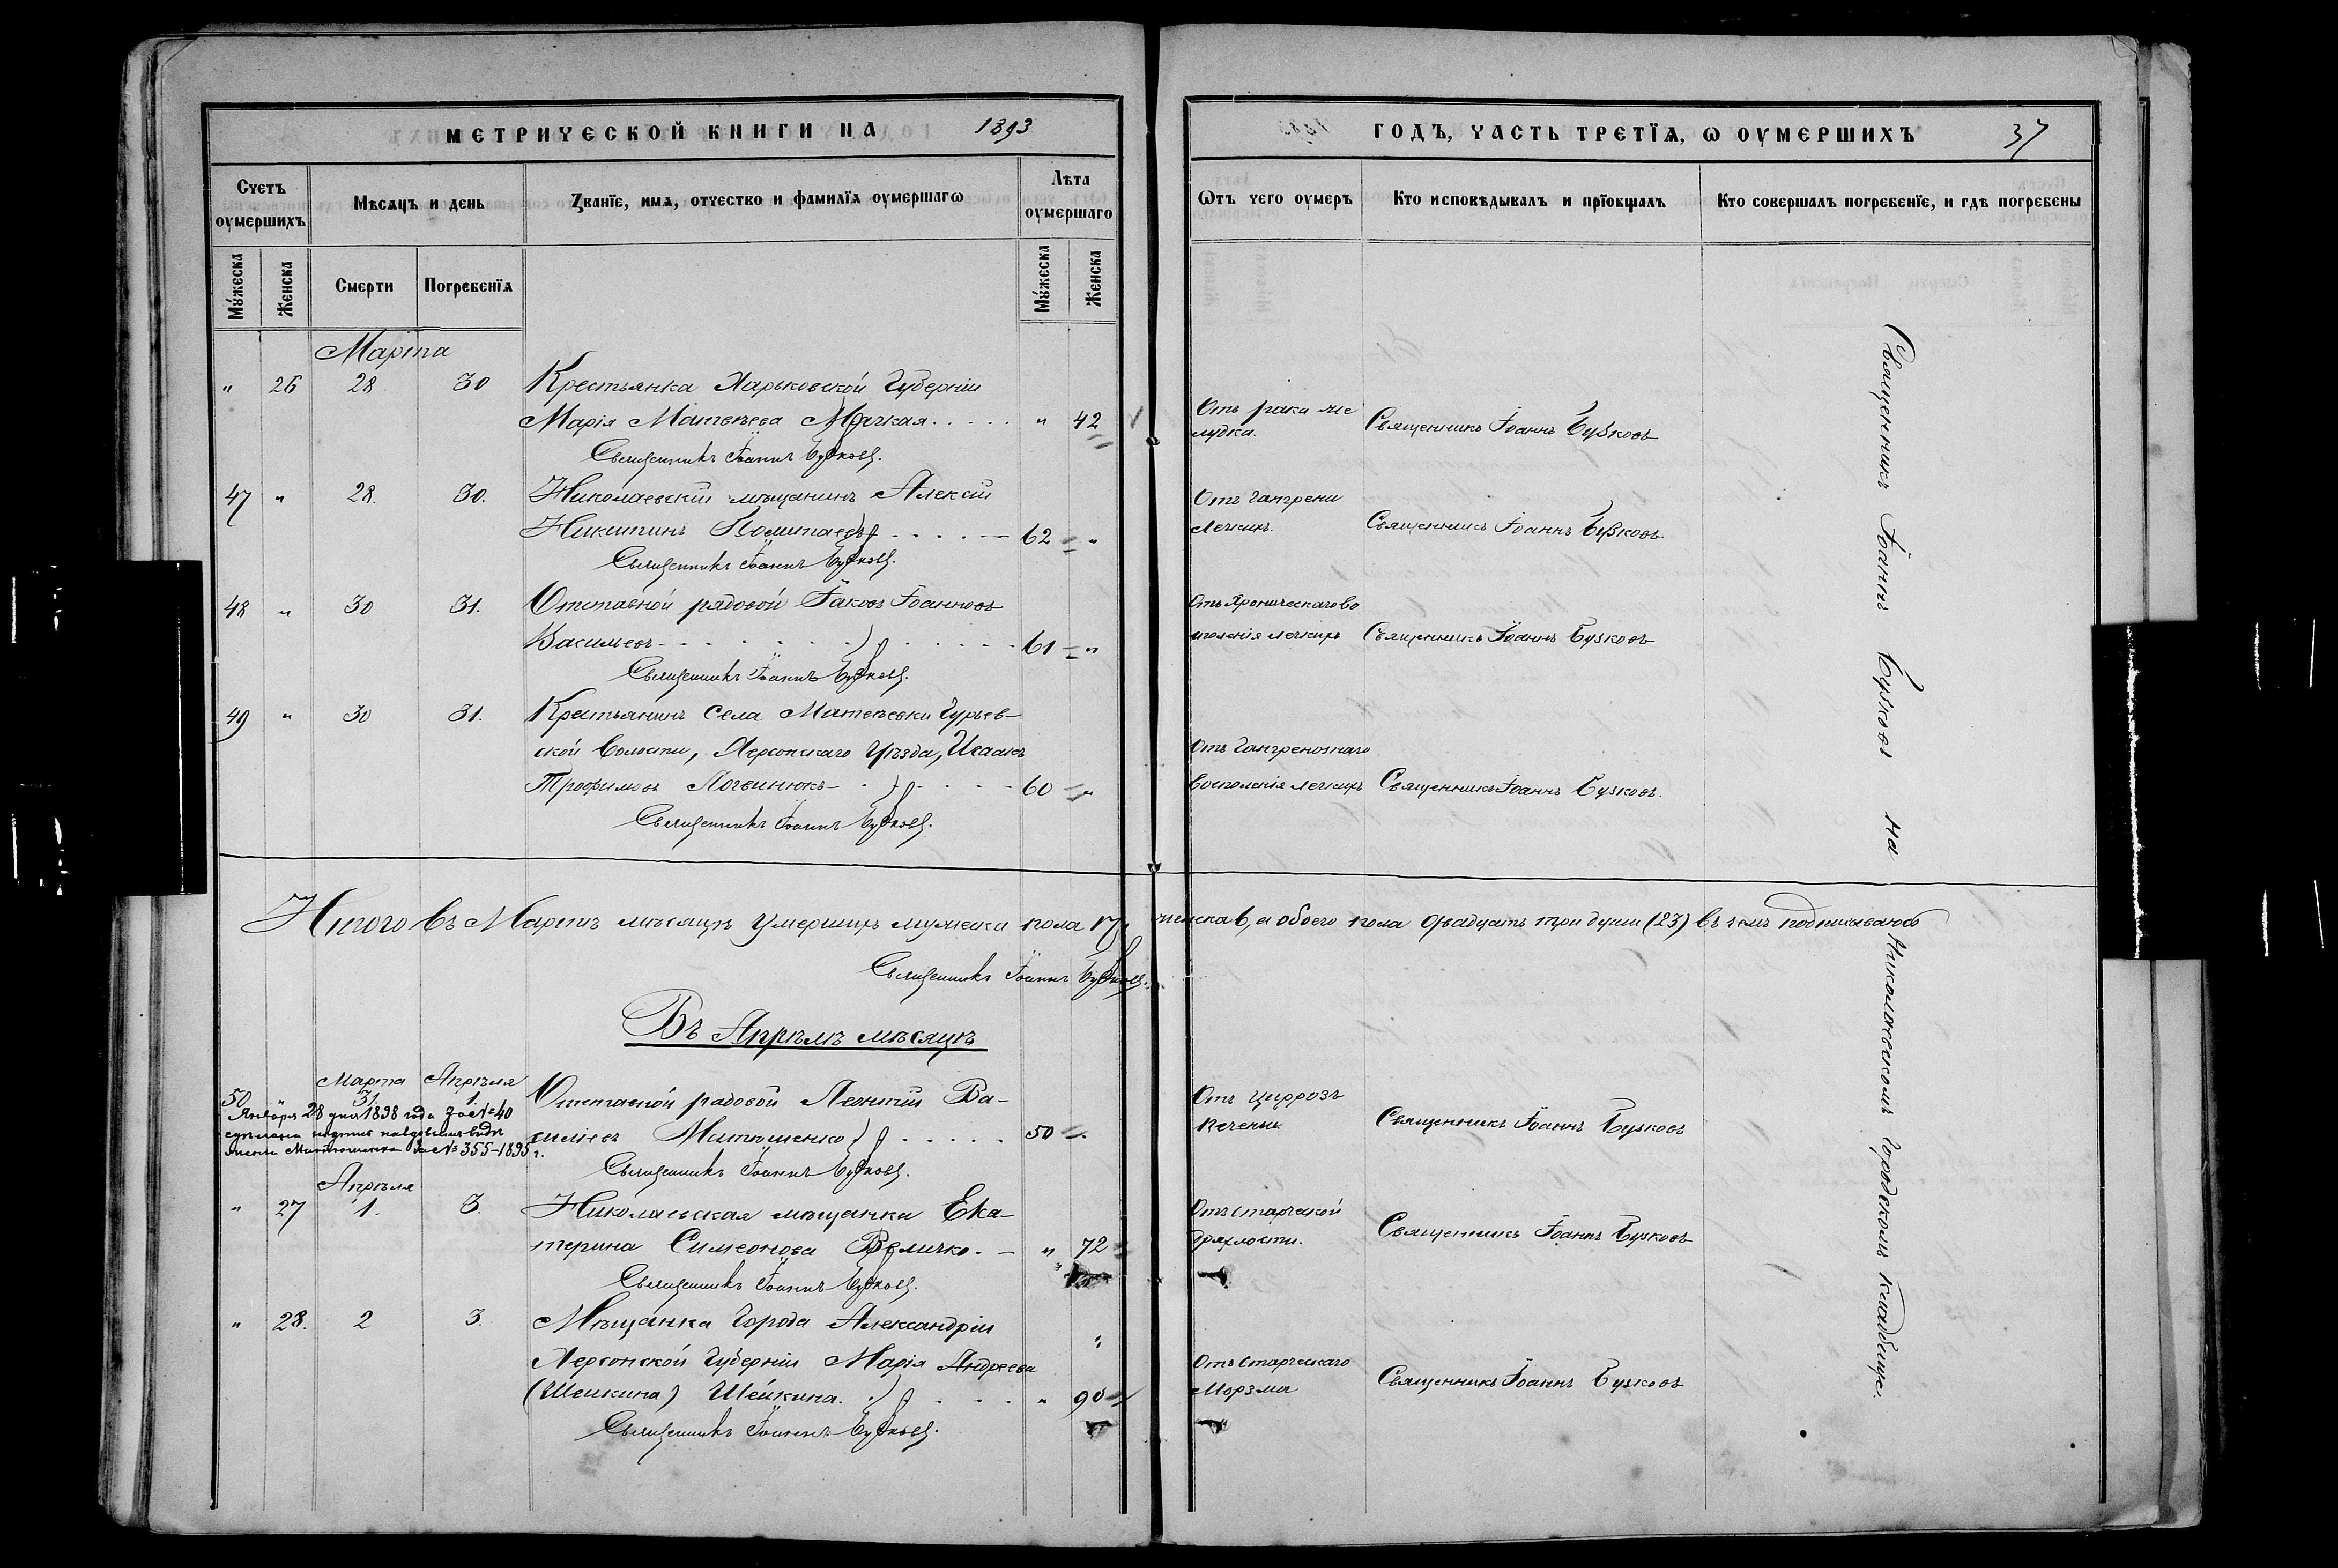 МЕТРИЧЕСКОЙ КНИГИ НА 1893
Счетъ оумершихъ
Мѣсяцъ и день
Званїе, имѧ, отчество и фамилїѧ оумершагѡ
Лѣта оумершаго
Мꙋжеска
Женска
Смерти
Погребенїѧ
Мꙋжеска
Женска
Марта
" 26 28 30 Крестьянка Харьковской Губерніи
Марія Матвѣева . . . . . " 42
Священникъ Іоаннъ Бузковъ.
47 " 28. 30. Николаевскій мѣщанинъ Алексій
Никитинъ . . . . . 62 "
Священникъ Іоаннъ Бузковъ.
48 " 30 31. Отставной рядовой Іаковъ Іоанновъ
Васильевъ . . . . . 61 "
Священникъ Іоаннъ Бузковъ.
49 " 30 31. Крестьянинъ Села Матвѣевки Гурьев-
ской Волости, Херсонскаго Уѣзда, Исаакъ
Трофимовъ Логвинюкъ . . . . 60 "
Священникъ Іоаннъ Бузковъ.
Итого въ Мартѣ мѣсяцѣ умершихъ мужеска пола 17,
Священникъ Іоаннъ Бузковъ.
Въ Апрѣлѣ мѣсяцѣ
Марта Апрѣля
50 " 31. 1. Отставной рядовой Леонтій Ва-
Января 28 дня 1898 года за № 40
силіевъ Матюшенко . . . . . 50 "
Матюшенко за № 355-1895 г.
Священникъ Іоаннъ Бузковъ.
Апрѣля
" 27 1. 3. Николаевская мѣщанка Ека-
терина Симеонова Величко. " 72
Священникъ Іоаннъ Бузковъ.
" 28. 2 3. Мѣщанка Города Александріи
Херсонской Губерніи Марія Андреева
(Шешкина) Шейкина. . . . . " 90
Священникъ Іоаннъ Бузковъ.
ГОДЪ, ЧАСТЬ ТРЕТЇѦ, Ѡ ОУМЕРШИХЪ 37
Ѡтъ чего оумеръ
Кто исповѣдывалъ и прїобщалъ
Кто совершалъ погребенїе, и гдѣ погребены
Отъ рака же
лудка. Священникъ Іоаннъ Бузковъ
Отъ гангрени
легкихъ. Священникъ Іоаннъ Бузковъ.
Отъ Хроническаго во
споленія легкихъ Священникъ Іоаннъ Бузковъ
Отъ Гангренознаго
восполенія легкихъ Священникъ Іоаннъ Бузковъ.
женска 6, а обоего пола двадцать три души (23) въ чемъ подписываюсь
Отъ цирроза
печени Священникъ Іоаннъ Бузковъ
Отъ старческой
дряхлости. Священникъ Іоаннъ Бузковъ
Отъ Старческаго
Морзма Священникъ Іоаннъ Бузковъ
Священникъ Іоаннъ Бузковъ на Николаевскомъ Городскомъ Кладбище.